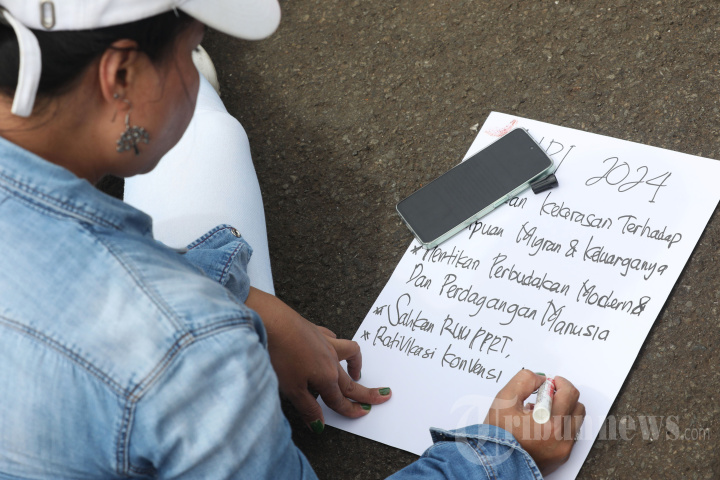 2024
Kekerasan Terhadap
Migran & Keluarganya
* Hentikan Perbudakan Modern &
Dan Perdagangan Manusia
* Sahkan RUU PPRT,
* Rativikasi Konvensi
Tribunnews.com